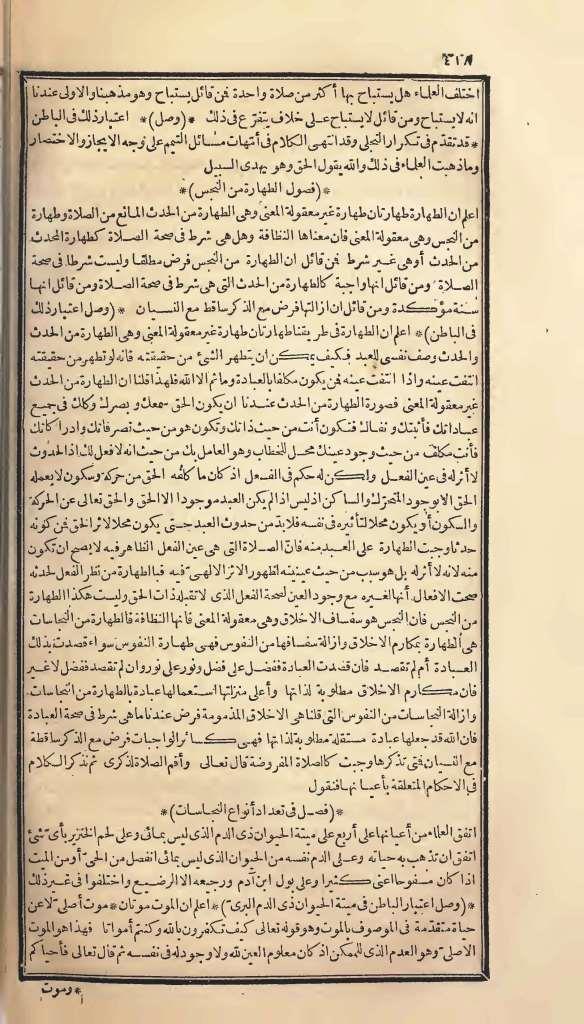 ٤١٨
اختلف العلماء هل يستباح بها أكثر من صلاة واحدة فمن قائل يستباح وهو مذهبنا والاولى عندنا
انه لا يستباح ومن قائل لا يستباح على خلاف يتفرع في ذلك *(وصل)* اعتبار ذلك في الباطن
* قد تقدّم في تكرار التجلى وقد انتهى الكلام في أمهات مسائل التيمم على وجه الايجاز والاختصار
وما ذهبت العلماء في ذلك والله يقول الحق وهو يهدى السبيل
*(فصول الطهارة من النجس)*
اعلم ان الطهارة طهارتان طهارة غير معقولة المعنى وهى الطهارة من الحدث المانع من الصلاة وطهارة
من النجس وهى معقولة المعنى فان معناها النظافة وهل هى شرط في صحة الصلاة كطهارة المحدث
من الحدث أو هى غير شرط فمن قائل ان الطهارة من النجس فرض مطلقا وليست شرطا في صحة
الصلاة ومن قائل انها واجبة كالطهارة من الحدث التى هى شرط في صحة الصلاة ومن قائل انها
سنة مؤكدة ومن قائل ان ازالتها فرض مع الذكر ساقط مع النسيان *(وصل اعتبار ذلك
في الباطن)* اعلم ان الطهارة في طريقتنا طهارتان طهارة غير معقولة المعنى وهى الطهارة من الحدث
والحدث وصف نفسى للعبد فكيف يمكن ان يتطهر الشئ من حقيقته فانه لو تطهر من حقيقته
انتفت عينه واذا انتفت عينه فمن يكون مكلفا بالعبادة وما ثم الا الله فلهذا قلنا ان الطهارة من الحدث
غير معقولة المعنى فصورة الطهارة من الحدث عندنا ان يكون الحق سمعك وبصرك وكلك في جميع
عباداتك فأثبتك ونفاك فتكون أنت من حيث ذاتك وتكون هو من حيث تصرفاتك وادراكاتك
فأنت مكلف من حيث وجود عينك محل للخطاب وهو العامل بك من حيث انه لا فعل لك اذ الحدوث
لا أثر له في عين الفعل ولكن له حكم في الفعل اذ كان ما كلفه الحق من حركة وسكون لا يعمله
الحق الا بوجود المتحرّك والساكن اذ ليس اذا لم يكن العبد موجودا الا الحق والحق تعالى عن الحركة
والسكون أو يكون محلا لتأثيره في نفسه فلا بدّ من حدوث العبد حتى يكون محلا لاثر الحق فمن كونه
حدثا وجبت الطهارة على العبد منه فانّ الصلاة التى هى عين الفعل الظاهر فيه لا يصح ان تكون
منه لانه لا أثر له بل هو سبب من حيث عينيته لظهور الاثر الالهىّ فيه فبالطهارة من نظر الفعل لحدثه
صحت الافعال أنها لغيره مع وجود العين لصحة الفعل الذى لا تقبله ذات الحق وليست هكذا الطهارة
من النجس فان النجس هو سفساف الاخلاق وهى معقولة المعنى فانها النظافة فالطهارة من النجاسات
هى الطهارة بمكارم الاخلاق وازالة سفسافها من النفوس فهى طهارة النفوس سواء قصدت بذلك
العبادة أم لم تقصد فان قصدت العبادة ففضل على فضل ونور على نور وان لم تقصد ففضل لا غير
فان مكارم الاخلاق مطلوبة لذاتها وأعلى منزلتها استعمالها عبادة بالطهارة من النجاسات
وازالة النجاسات من النفوس التى قلنا هى الاخلاق المذمومة فرض عندنا ما هى شرط في صحة العبادة
فان الله قد جعلها عبادة مستقلة مطلوبة لذاتها فهى كسائر الواجبات فرض مع الذكر ساقطة
مع النسيان فمتى تذكرها وجبت كالصلاة المفروضة قال تعالى وأقم الصلاة لذكرى ثم نذكر الكلام
في الاحكام المتعلقة بأعيانها فنقول
*(فصل في تعداد أنواع النجاسات)*
اتفق العلماء من أعيانها على أربع على ميتة الحيوان ذى الدم الذى ليس بمائى وعلى لحم الخنزير بأىّ شئ
اتفق ان تذهب به حياته وعلى الدم نفسه من الحيوان الذى ليس بمائى انفصل من الحىّ أو من الميت
اذا كان مسفوحا أعنى كثيرا وعلى بول ابن آدم ورجيعه الا الرضيع واختلفوا في غير ذلك
*(وصل اعتبار الباطن في ميتة الحيوان ذى الدم البرىّ)* اعلم ان الموت موتان * موت أصلىّ لا عن
حياة متقدّمة في الموصوف بالموت وهو قوله تعالى كيف تكفرون بالله وكنتم أمواتا فهذا هو الموت
الاصلىّ وهو العدم الذى للممكن اذ كان معلوم العين لله ولا وجود له في نفسه ثم قال تعالى فأحياكم
* وموت